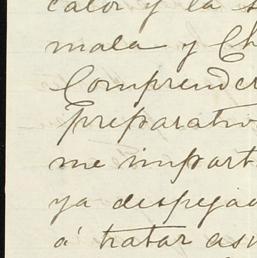 calor y la s
mala y Ch
Comprender
preparativo
me import
ya despejad
á tratar asu